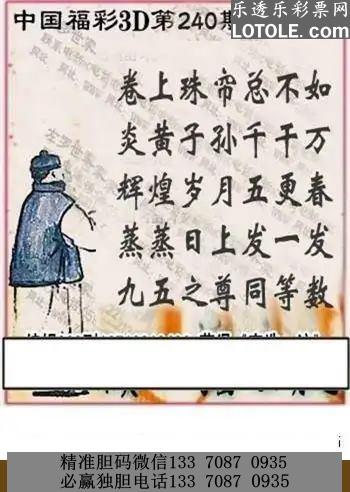 中国福彩3D第240期
乐透乐彩票网
LOTOLE.COM
卷上珠帘总不如
炎黄子孙千千万
辉煌岁月五更春
蒸蒸日上发一发
九五之尊同等数
精准胆码微信133 7087 0935
必赢独胆电话133 7087 0935